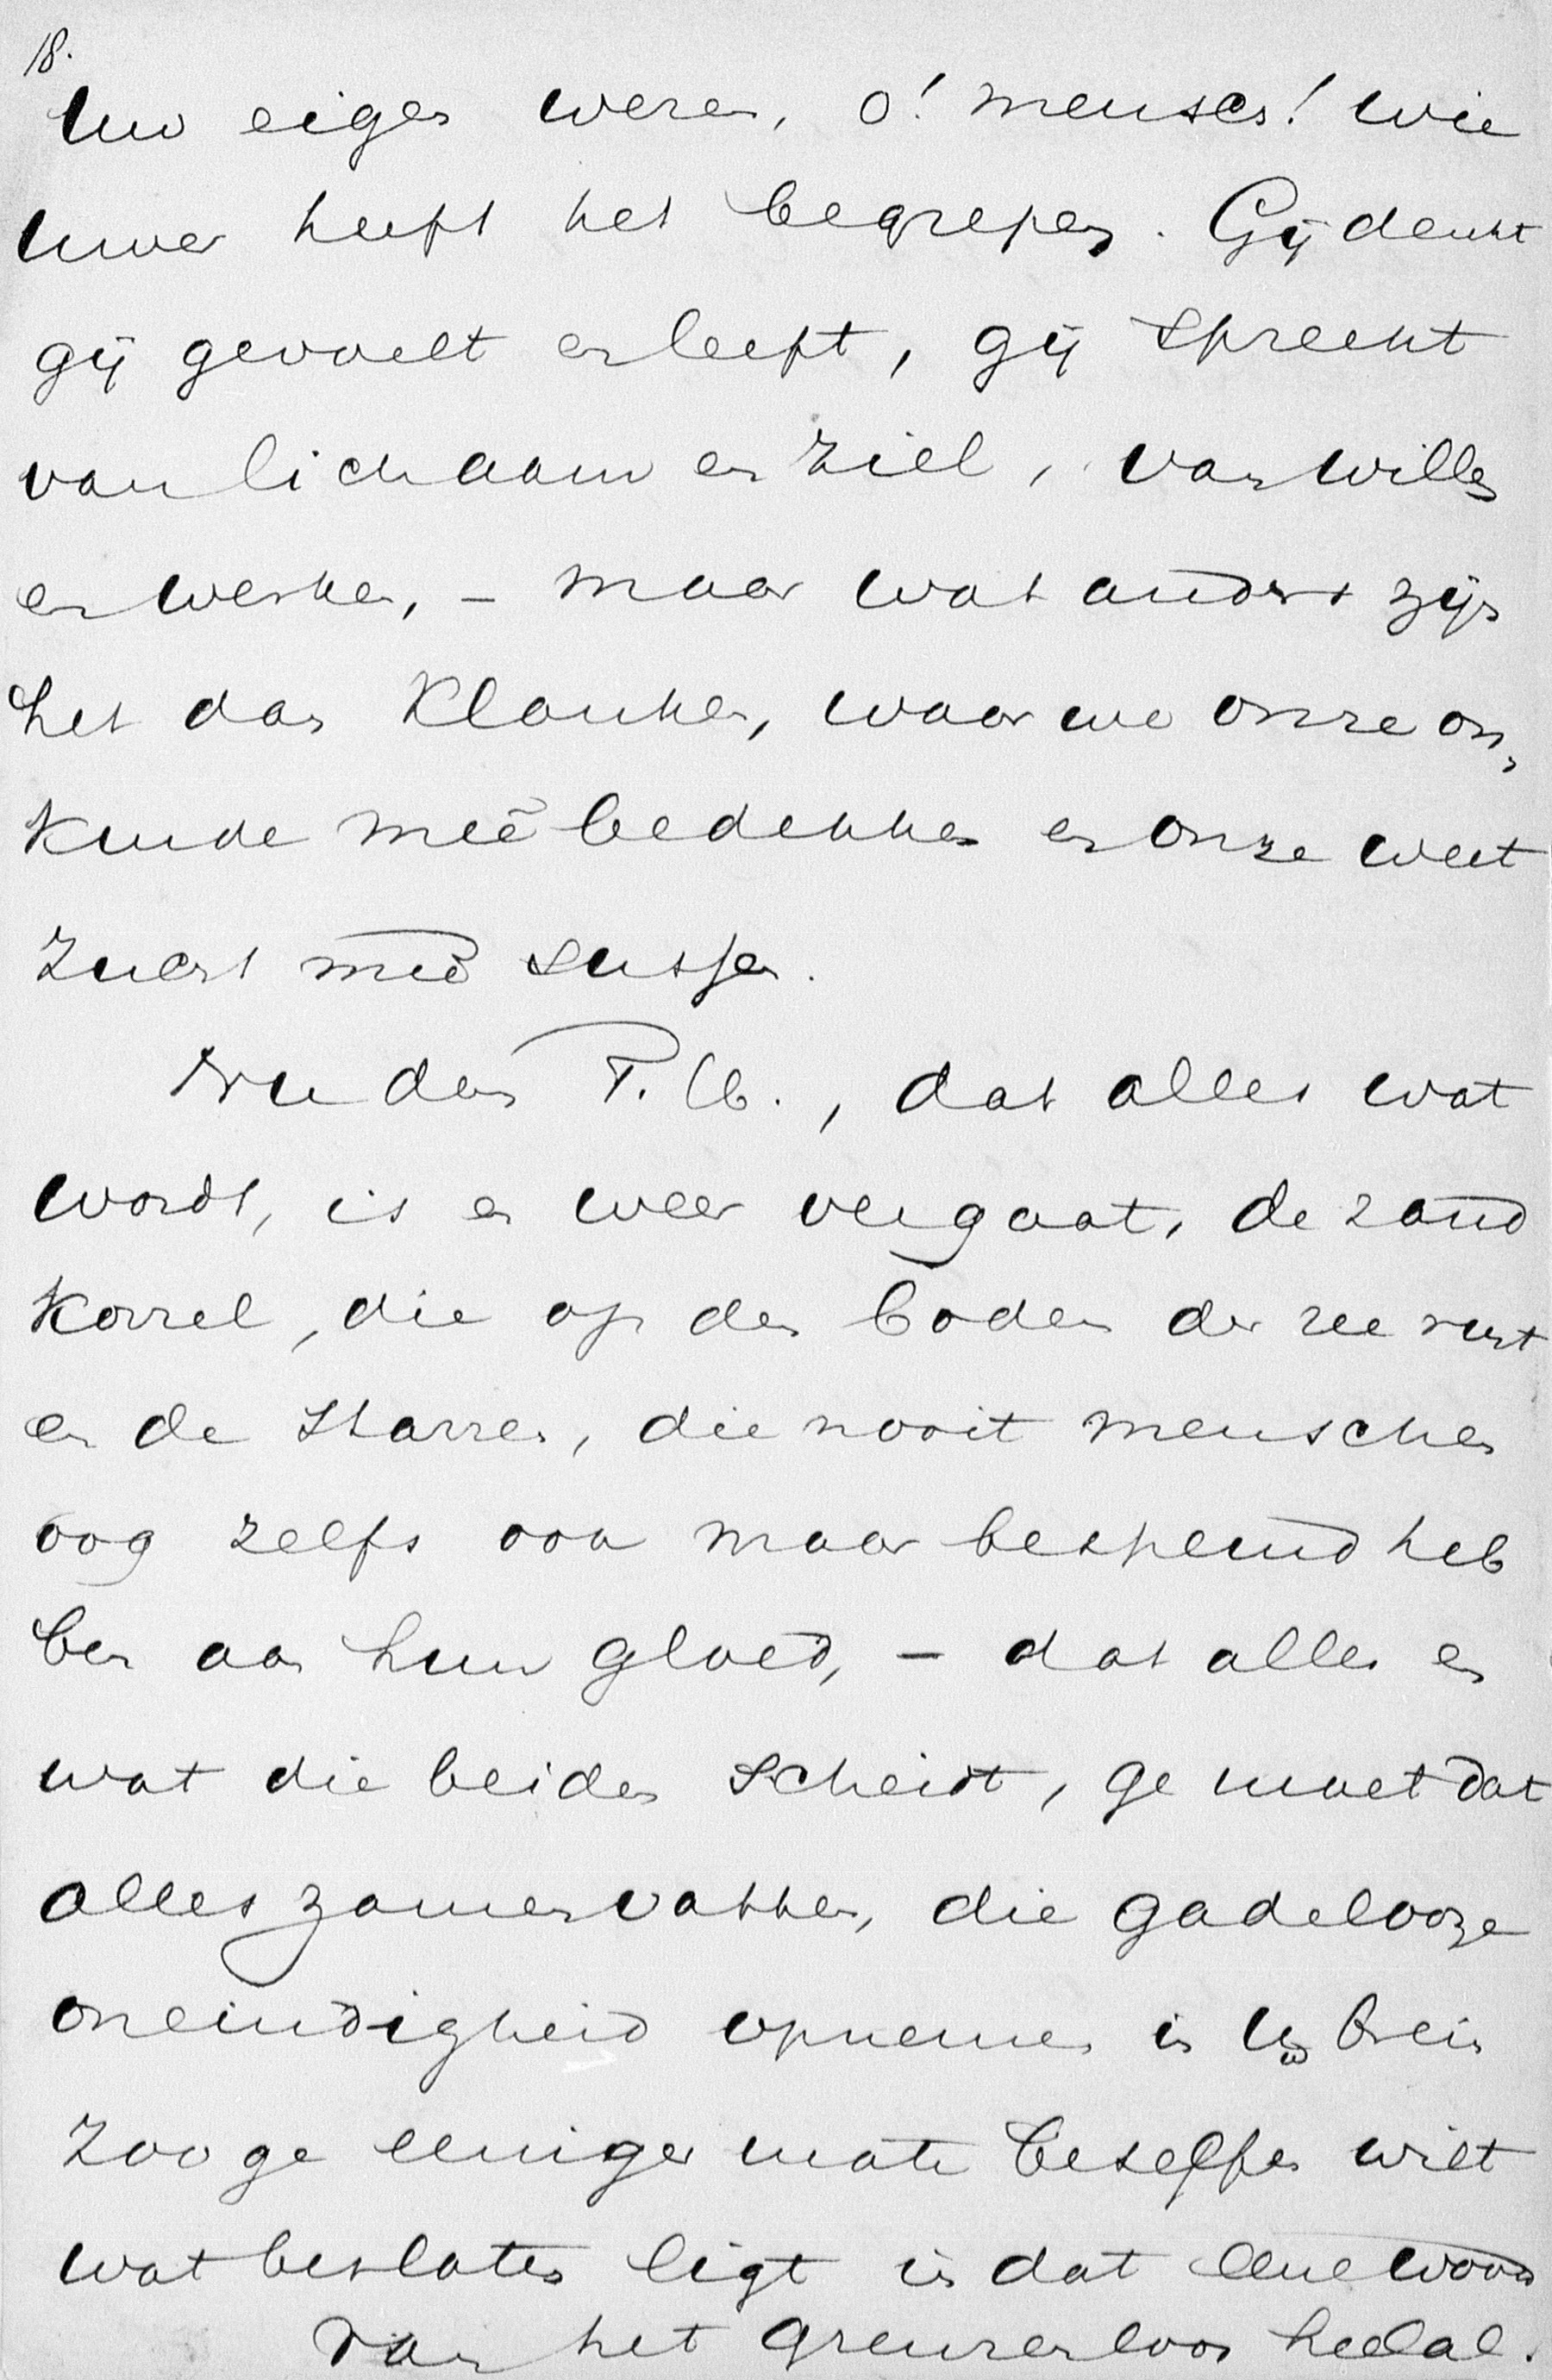 18.
Uw eigen wezen, o! mensch! wie
uwer heeft het begrepen. Gij denkt
gij gevoelt en leeft, gij spreekt
van lichaam en ziel, van willen
en werken, – maar wat anders zijn
het dan klanken, waar we onze on,
kunde meê bedekken en onze weet
zucht meê sussen.
Nu dan P. G., dat alles wat
wordt, is en weer vergaat, de zand
korrel, die op den bodem der zee rust
en de starren, die nooit menschen
oog zelfs ook maar bespeurd heb
ben aan hun gloed, – dat alles en
wat die beiden scheidt, ge moet dat
alles zamenvatten, die gadelooze
oneindigheid opnemen in Uw brein
zoo ge eeniger mate beseffen wilt
wat besloten ligt in dat eene woord
van het grenzenloos heelal.